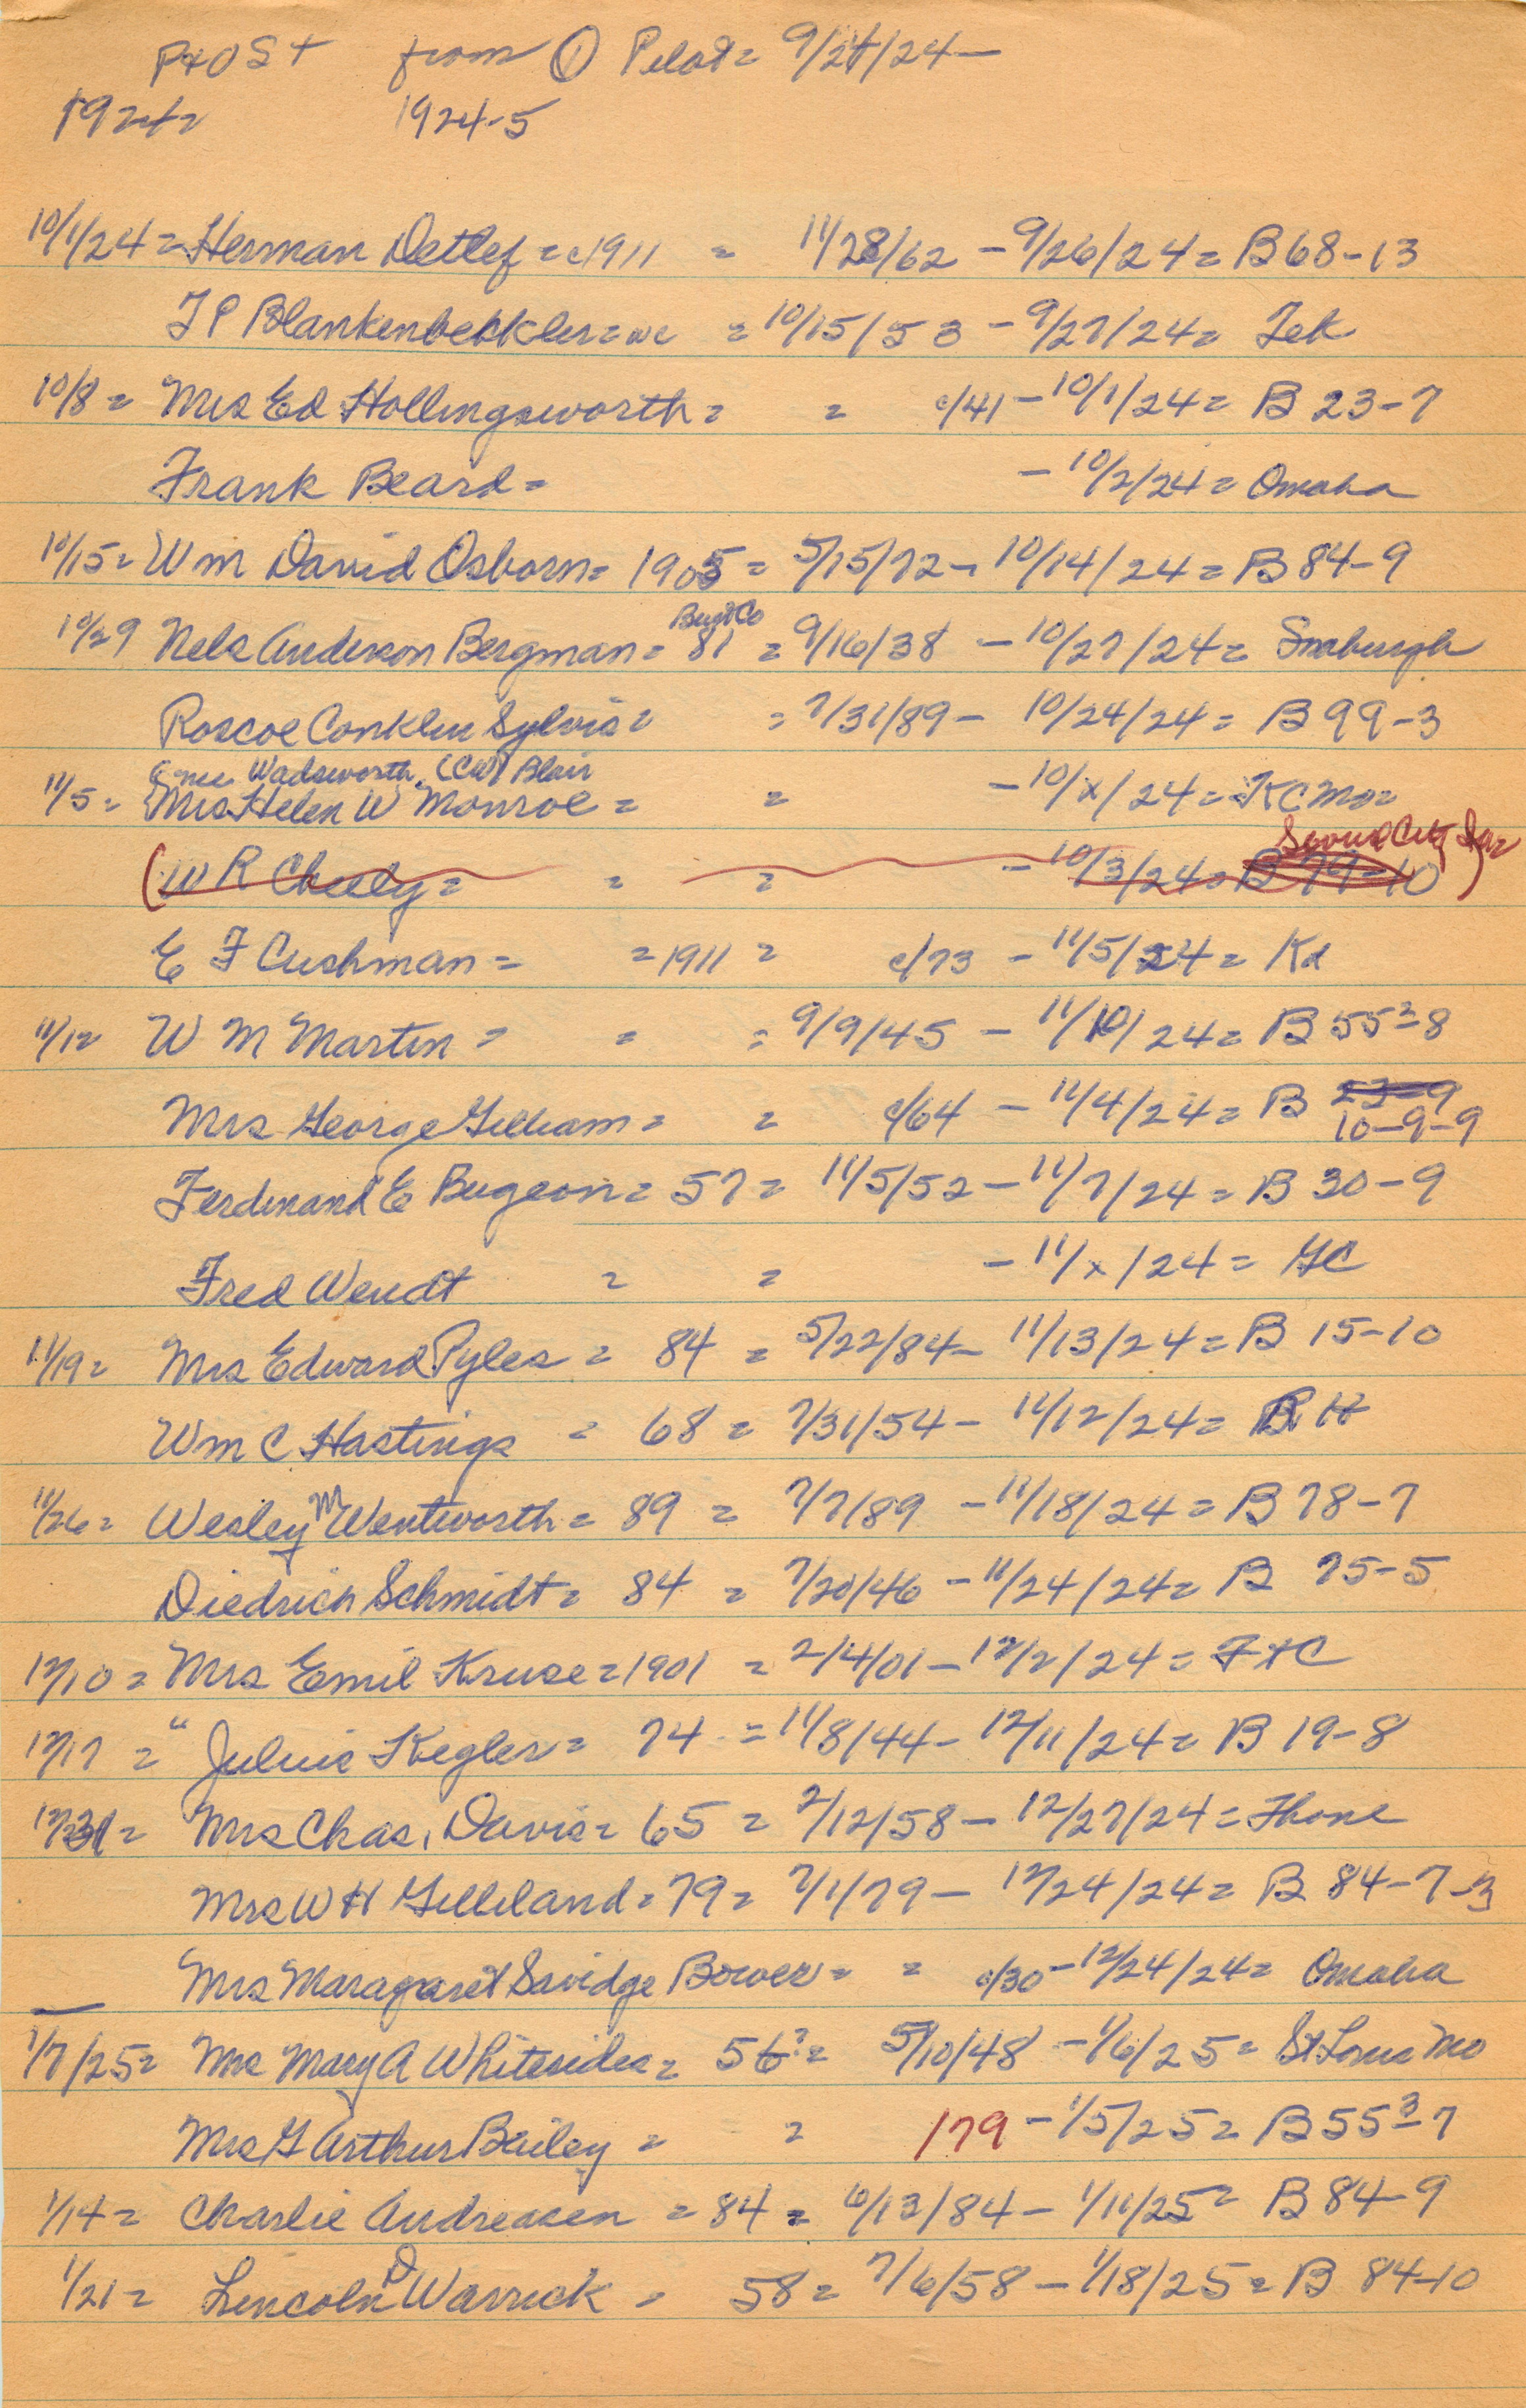 P+OST from ① Pilot = 9/24/24 —
1924 = 1924-5
10/1/24 = Herman Detlef = c1911 = 11/28/62 - 9/26/24 = B 68-13
J P Blankenbekkler = wc = 10/15/53 - 9/27/24 = Tek
10/8 = Mrs Ed Hollingsworth = = c/41 - 10/1/24 = B 23-7
Frank Beard = - 10/2/24 = Omaha
10/15 = Wm David Osborn = 1905 = 5/15/72 - 10/14/24 = B 84-9
Burt Co
10/29 Nels Anderson Bergman = 81 = 9/16/38 - 10/27/24 = Snaburgh
Roscoe Conklin Sylvis = = 7/31/89 - 10/24/24 = B 99-3
nee Wadsworth, (CW) Blair
11/5 = Mrs Helen W Monroe = = - 10/x/24 = KC Mo =
Sioux City Ia =
(W R Cheely = = = - 10/3/24 = B 79-10)
E F Cushman = = 1911 = c/73 - 11/5/24 = Kd
11/12 W M Martin = = = 9/9/45 - 11/10/24 = B 55²-8
Mrs George Gilliam = = c/64 - 11/4/24 = B 23-9
10-9-9
Ferdinand E Bugeon = 57 = 11/5/52 - 11/7/24 = B 30-9
Fred Wendt = = - 11/x/24 = GC
11/19 = Mrs Edward Pyles = 84 = 5/22/84 - 11/13/24 = B 15-10
Wm C Hastings = 68 = 7/31/54 - 11/12/24 = R H
11/26 = Wesley M Wentworth = 89 = 7/7/89 - 11/18/24 = B 78-7
Diedrich Schmidt = 84 = 7/20/46 - 11/24/24 = B 75-5
12/10 = Mrs Emil Kruse = 1901 = 2/4/01 - 12/2/24 = F+C
12/17 = " Julius Kegler = 74 = 11/8/44 - 12/11/24 = B 19-8
12/31 = Mrs Chas. Davis = 65 = 2/12/58 - 12/27/24 = Fhome
Mrs W H Gilleland = 79 = 7/1/79 - 12/24/24 = B 84-7-3
Mrs Maragaret Savidge Bower = = c/30 - 12/24/24 = Omaha
1/7/25 = Mrs Mary A Whitesides = 56? = 5/10/48 - 1/6/25 = St Louis Mo
Mrs G Arthur Bailey = = 179 - 1/5/25 = B 55³-7
1/14 = Charlie Andreasen = 84 = 6/13/84 - 1/11/25 = B 84-9
1/21 = Lincoln D Warrick = 58 = 7/6/58 - 1/18/25 = B 84-10